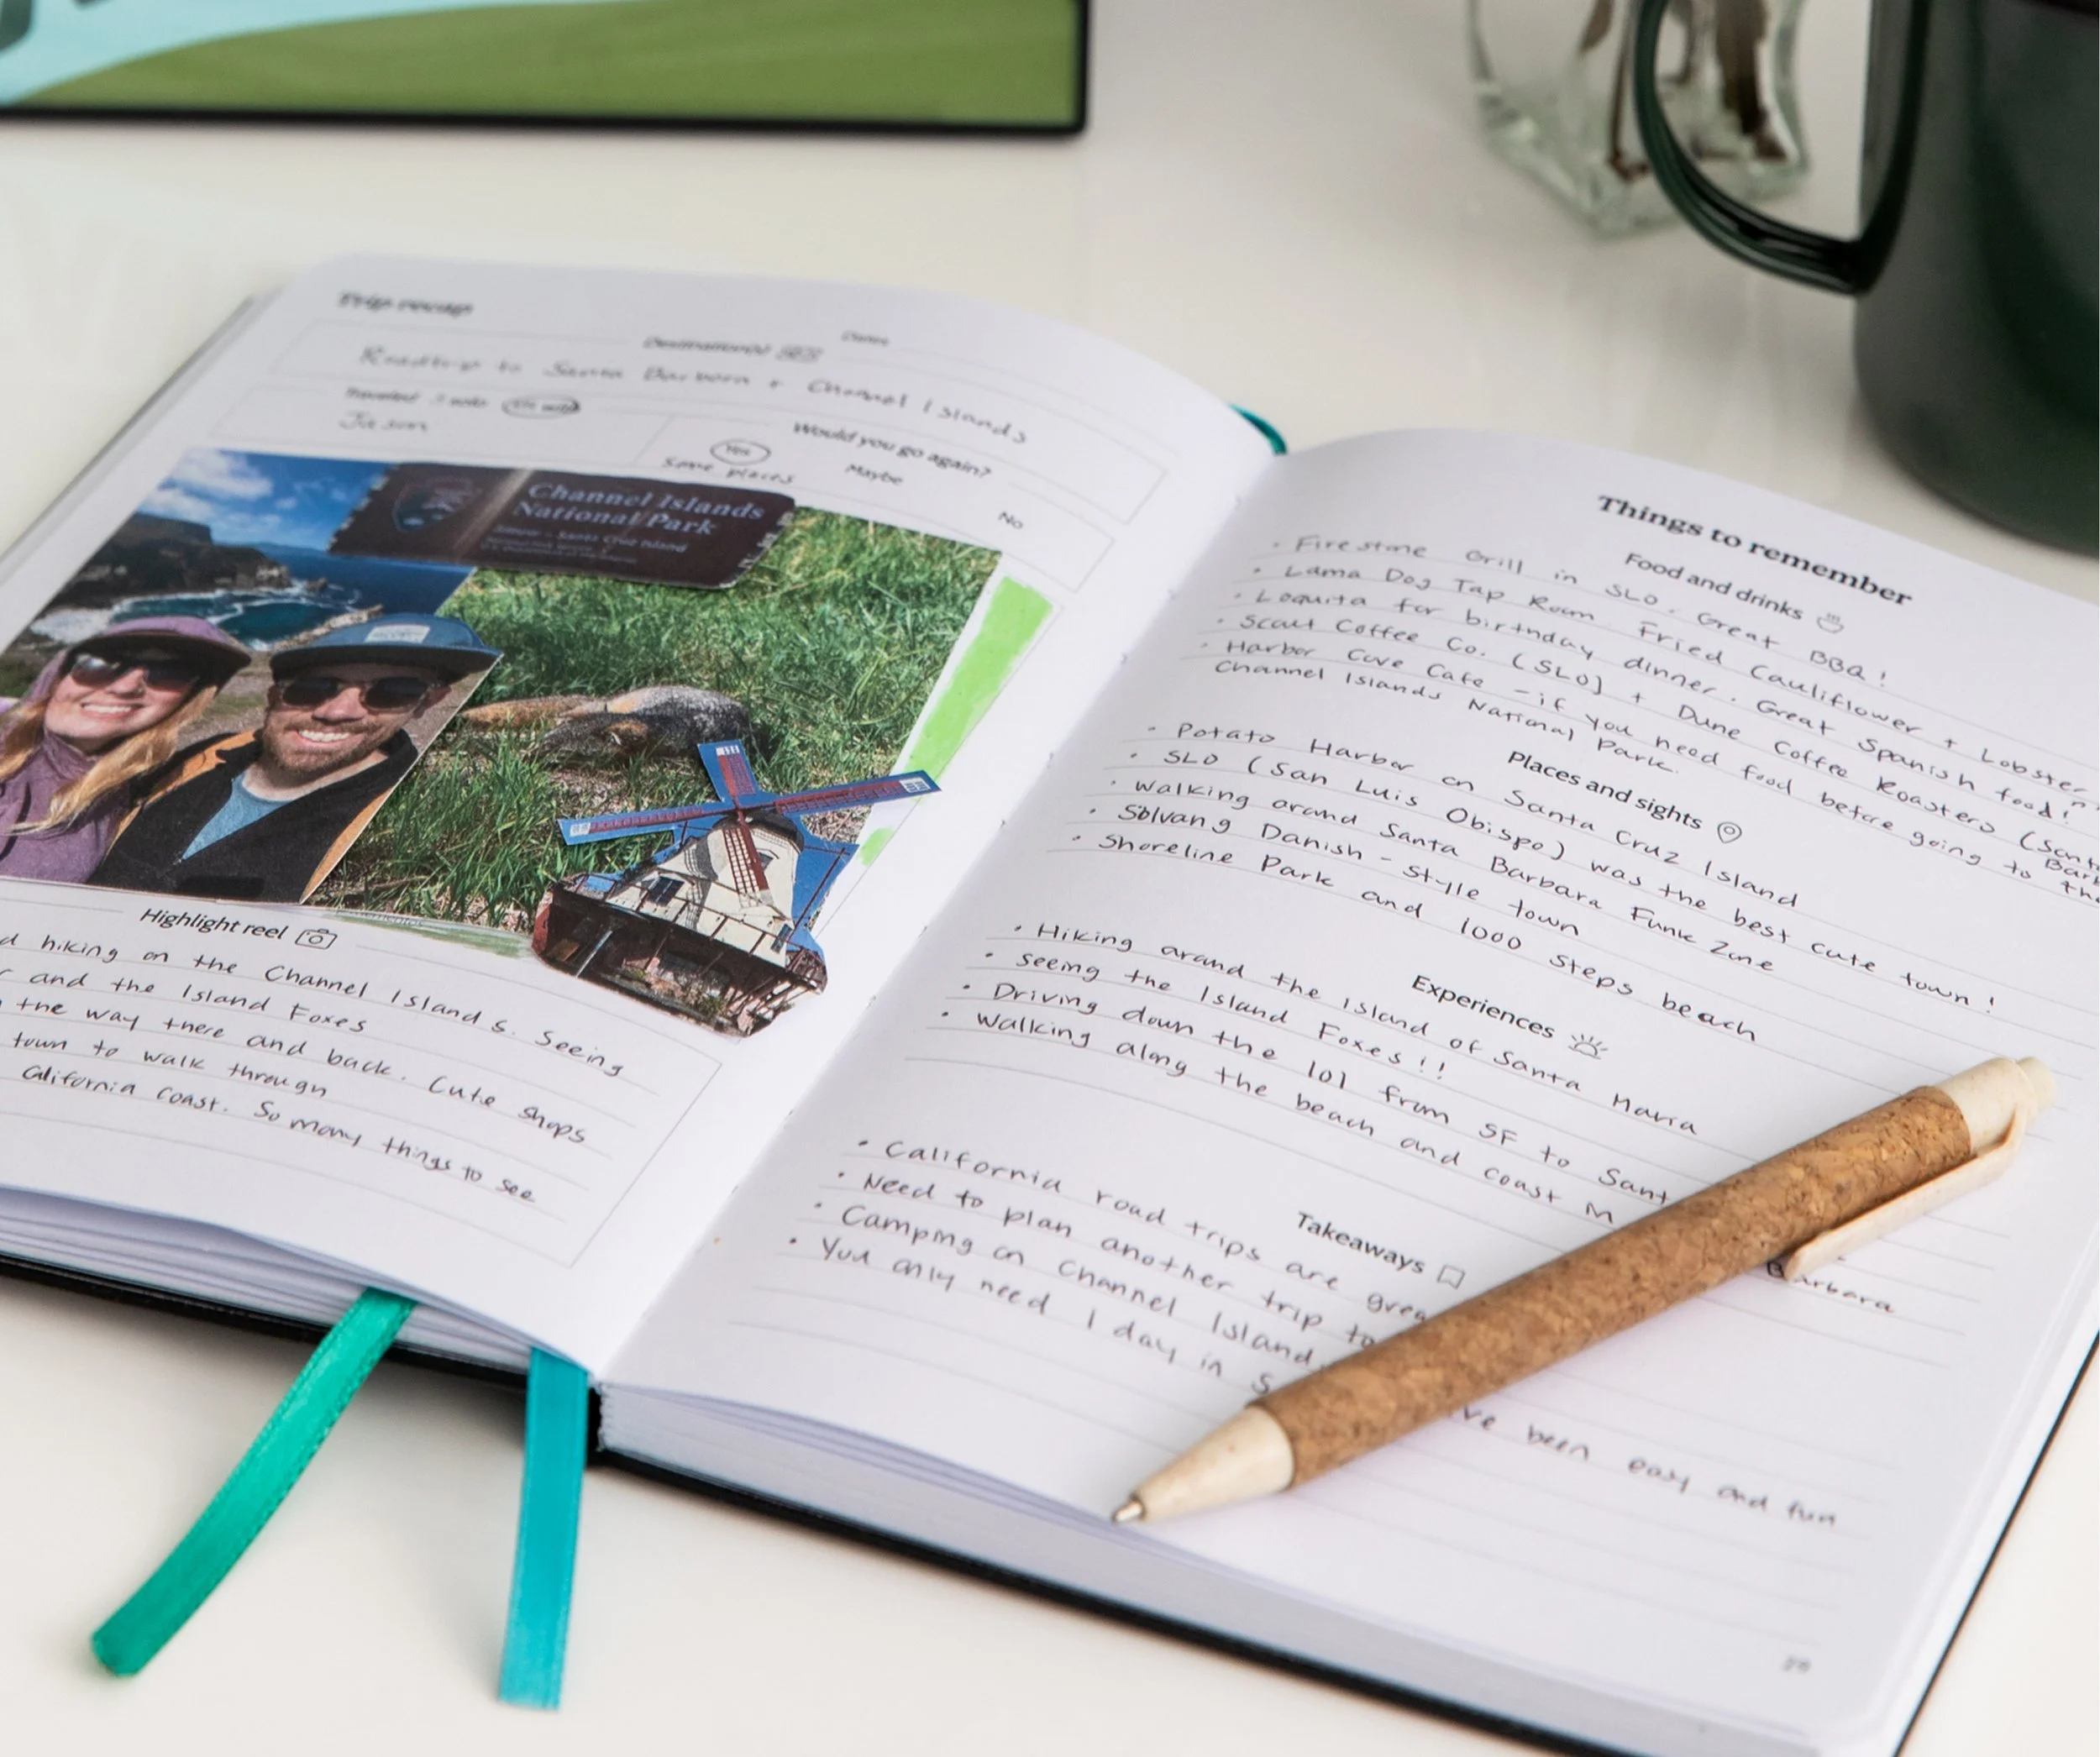 Trip recap
Destination(s)
Dates
Roadtrip to Santa Barbara + Channel Islands
Traveled
solo
Jason
Would you go again?
Yes
Maybe
No
some places
Channel Islands
National Park
Santa Cruz Island
Highlight reel
hiking on the Channel Islands. Seeing
and the Island Foxes
the way there and back. Cute shops
town to walk through
California coast. So many things to see
Things to remember
Food and drinks
• Firestone Grill in SLO. Great BBQ!
• Lama Dog Tap Room Fried Cauliflower + Lobster
• Loquita for birthday dinner. Great Spanish food!
• Scout Coffee Co. (SLO) + Dune Coffee Roasters (Santa
• Harbor Cove Cafe - if you need food before going to the
Channel Islands National Park.
Places and sights
• Potato Harbor on Santa Cruz Island
• SLO (San Luis Obispo) was the best cute town!
• Walking around Santa Barbara Funk Zone
• Solvang Danish-style town
• Shoreline Park and 1000 steps beach
Experiences
• Hiking around the island of Santa Maria
• Seeing the Island Foxes!!
• Driving down the 101 from SF to Sant
Barbara
• Walking along the beach and coast M
Takeaways
• California road trips are grea
• Need to plan another trip to
• Camping on Channel Island
• You only need 1 day in S
've been easy and fun